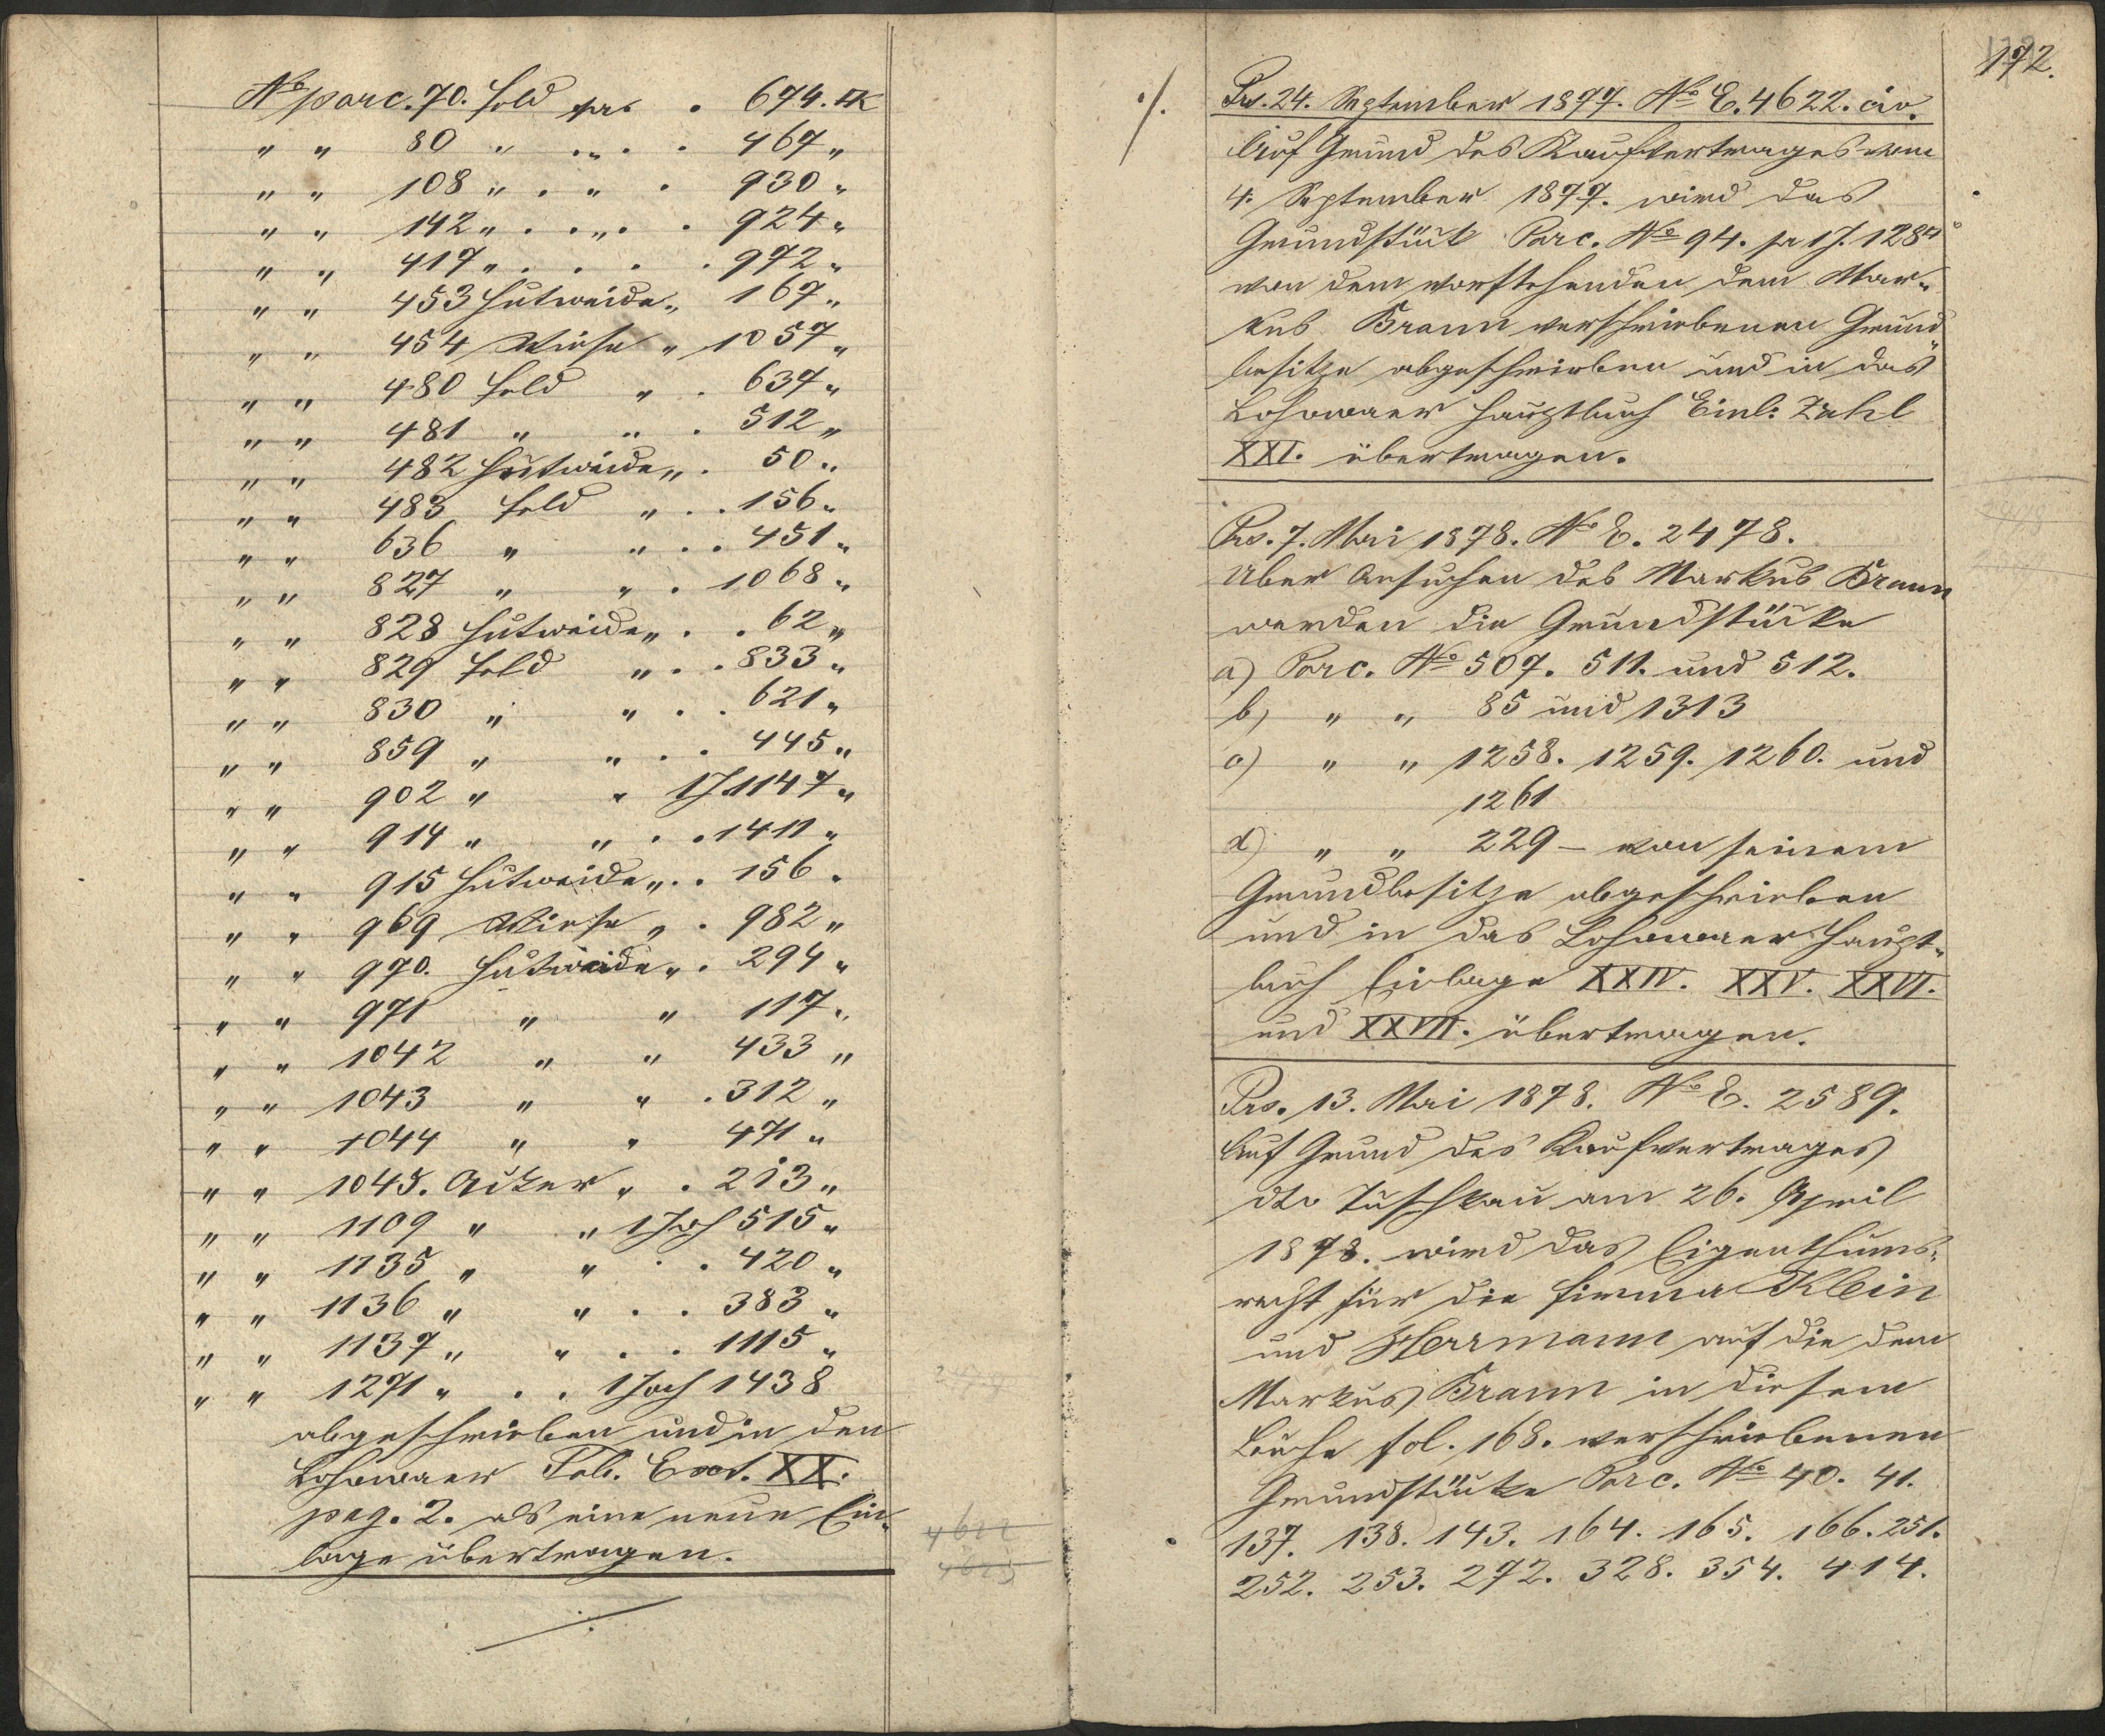 No parc. 70. Feld per . 674. □K
" " 80 " . " . . 467 "
" " 108 " . " . 930 "
" " 142 " . . " . . 924 "
" " 417 " . . . . 972 "
" " 453 Hutweide " 167 "
" " 454 Wiese " 1057 "
" " 480 Feld " . 637 "
" " 481 " " . 512 "
" " 482 Hutweide " . 50 "
" " 483 Feld " . . 156 "
" " 636 " " . . 451 "
" " 827 " " . 1068 "
" " 828 Hutweide " . . 62 "
" " 829 Feld " . . 833 "
" " 830 " " . . 621 "
" " 859 " " . . 445 "
" " 902 " " 1J. 1147 "
" " 914 " " . . 1411 "
" " 915 Hutweide " . . 156 "
" " 969 Wiese " . 982 "
" " 970. Hutweide " . 294 "
" " 971 " " 117 "
" " 1042 " " 433 "
" " 1043 " " . 312 "
" " 1044 " " 471 "
" " 1045. Acker " . 213 "
" " 1109 " " 1 Joch 515 "
" " 1135 " " . . 420 "
" " 1136 " " . . 383 "
" " 1137 " " . . 1115 "
" " 1271 " . . 1 Joch 1438
abgeschrieben und in den
Lohowaer Fol. XX.
pag. 2. als eine neue Ein-
lage übertragen.
./.
4622
4623
172.
./. Prs. 24. September 1877. No E. 4622. civ.
Auf Grund des Kaufvertrages vom
4. September 1877. wird das
Grundstück Parc. No 94. pr 1J. 128□°
von dem vorstehenden dem Mar-
kus Braun verschriebenen Grund-
besitze abgeschrieben und in das
Lohowaer Hauptbuch Einl: Zahl
XXI. übertragen.
Prs. 7. Mai 1878. No E. 2478.
Über Ansuchen des Markus Braun
werden die Grundstücke
a) Parc. No 507. 511. und 512.
b) " " 85 und 1313
c) " " 1258. 1259. 1260. und
1261
d) " " 229 – von seinem
Grundbesitze abgeschrieben
und in das Lohowaer Haupt-
buch Einlage XXIV. XXV. XXVI.
und XXVII. übertragen.
Prs. 13. Mai 1878. No E. 2589.
Auf Grund des Kaufvertrages
dto Tuschkau am 26. April
1878. wird das Eigenthums-
recht für die Firma Klein
und Herrmann auf die dem
Markus Braun in diesem
Buche fol. 168. verschriebenen
Grundstücke Parc. No 40. 41.
137. 138. 143. 164. 165. 166. 251.
252. 253. 272. 328. 354. 414.